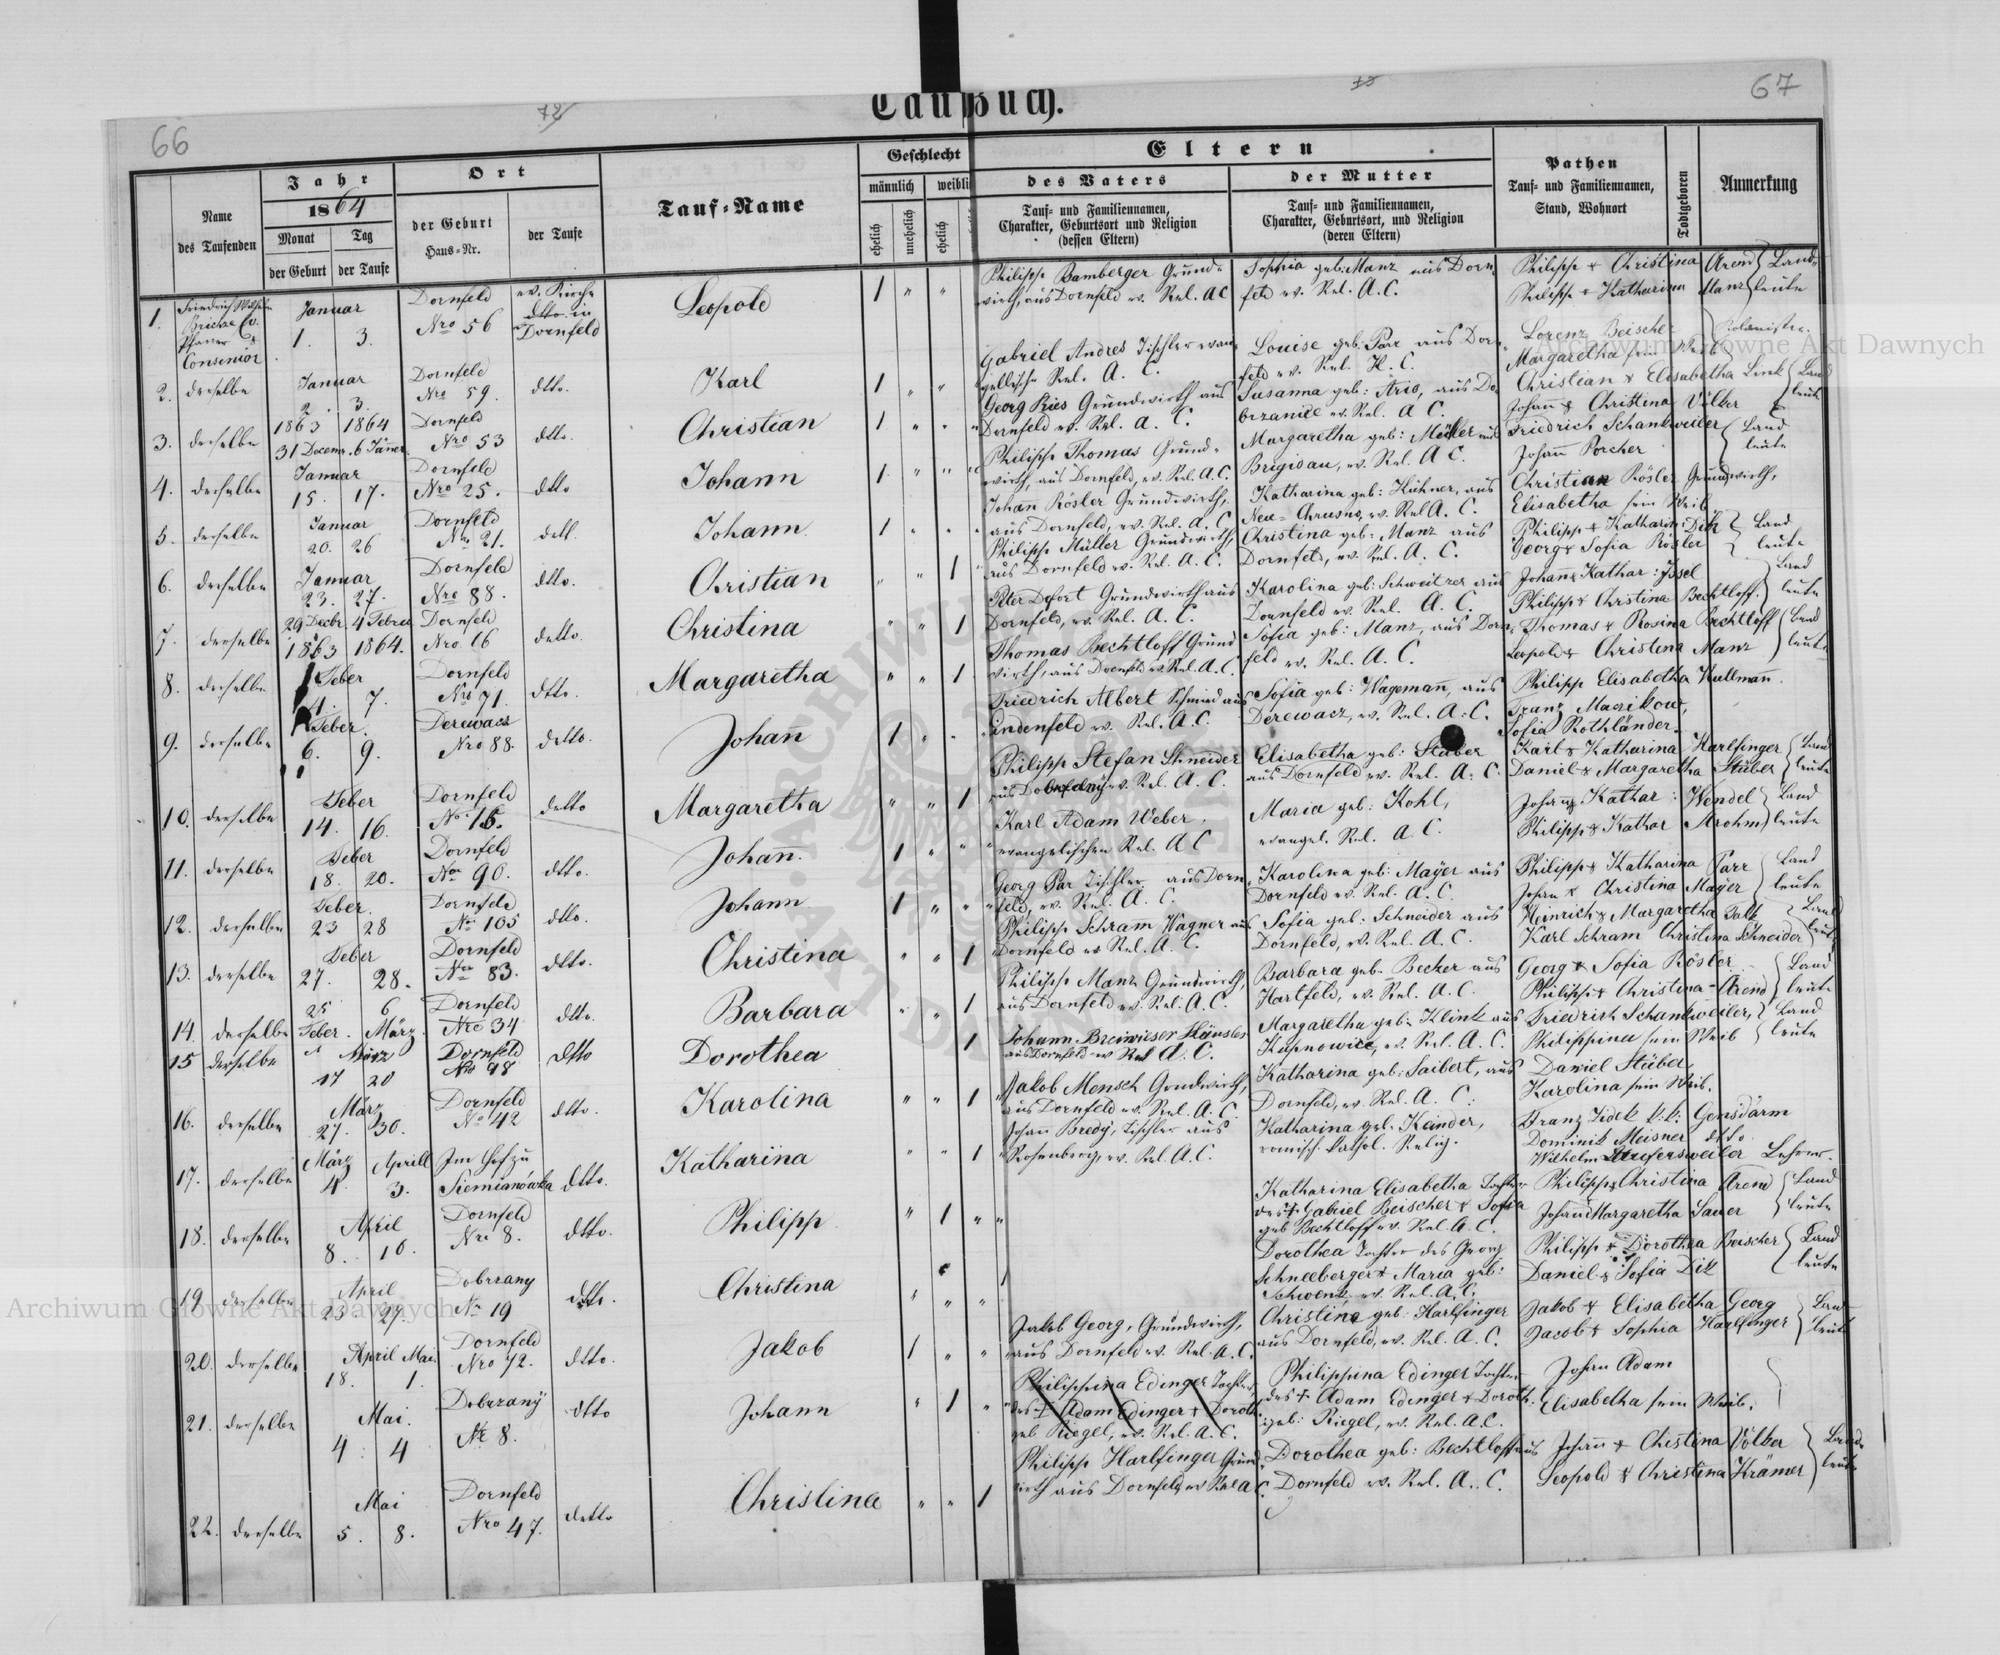 66
72
Taufbuch.
73
67
Name des Taufenden
Jahr
1864
Monat
Tag
der Geburt
der Taufe
Ort
der Geburt
Haus-Nr.
der Taufe
Tauf-Name
Geschlecht
männlich
weibli
ehelich
unehelich
ehelich
Eltern
des Vaters
Tauf- und Familiennamen,
Charakter, Geburtsort und Religion
(dessen Eltern)
der Mutter
Tauf- und Familiennamen,
Charakter, Geburtsort, und Religion
(deren Eltern)
Pathen
Tauf- und Familiennamen,
Stand, Wohnort
Todtgeboren
Anmerkung
1. Friedrich Wilhelm
Pfarrer &
Consenior
Januar
1. 3.
Dornfeld
Nro 56
ev. Kirche
dtto. in
Dornfeld
Leopold
1 " "
Philipp Bamberger Grund-
wirth, aus Dornfeld ev. Rel. A C
Sophia geb: Manz aus Dorn-
feld ev. Rel. A. C.
Philipp & Christina Arend
Philipp & Katharina Manz
Land-
leute
2. derselbe
Januar
2. 3.
Dornfeld
Nro 59.
dtto.
Karl
1 " "
Gabriel Andres Tischler evan-
gelische Rel. A. C.
Louise geb: Parr aus Dorn-
feld ev. Rel. H. C.
Lorenz Beischer
Margaretha sein Weib
3. derselbe
1863 1864
31 Decem. 6 Jäner
Dornfeld
Nro 53
dtto.
Christian
1 " " "
Georg Ries Grundwirth aus
Dornfeld ev. Rel. A. C.
Susanna geb: Aris, aus Do-
brzanice ev. Rel. A C.
Christian & Elisabetha Link
Johann & Christina Völker
Land
leute
4. derselbe
Januar
15. 17.
Dornfeld
Nro 25.
dtto
Johann
1 " " "
Philipp Thomas Grund-
wirth, aus Dornfeld, ev. Rel. A.C.
Margaretha geb: Müller aus
Brigidau, ev. Rel. A C.
Friedrich Schankweiler
Johann Porcher
Land
leute
5. derselbe
Januar
20. 26
Dornfeld
Nro 21.
dett.
Johann.
1 " " "
Johann Rösler Grundwirth,
aus Dornfeld, ev. Rel. A. C.
Katharina geb: Hühner, aus
Neu-Chrusno, ev. Rel A. C.
Christian Rösler Grundwirth,
Elisabetha sein Weib
6. derselbe
Januar
23. 27.
Dornfeld
Nro 88.
dtto.
Christian
" " 1 "
Philipp Müller Grundwirth
aus Dornfeld ev. Rel. A. C.
Christina geb: Manz aus
Dornfeld, ev. Rel. A. C.
Philipp & Katharin Dick
Georg & Sofia Rösler
Land
leute
7. derselbe
29 Decbr. 4 Febru
1863 1864.
Dornfeld
Nro. 16
detto.
Christina
" " 1
Peter Dofort Grundwirth aus
Dornfeld, ev. Rel. A. C.
Karolina geb: Schweitzer aus
Dornfeld ev. Rel. A. C.
Johann & Kathar: Issel
Philipp & Christina Bechtloff.
Land
leute
8. derselbe
Feber
1. 7.
Dornfeld
Nro 71.
dtto.
Margaretha
" " 1
Thomas Bechtloff Grund-
wirth, aus Dornfeld ev Rel. A. C.
Sofia geb: Manz, aus Dorn-
feld ev. Rel. A. C.
Thomas & Rosina Bechtloff
Leopold & Christina Manz
Land
leute
9. derselbe
Feber.
6. 9.
Derewacz
Nro 88.
detto.
Johann
1 " "
Friedrich Albert Schmied aus
Lindenfeld ev. Rel. A.C.
Sofia geb: Wagemann, aus
Derewacz, ev. Rel. A. C.
Philipp Elisabetha Kullmann.
Franz
Sofia Rothländer.
10. derselbe
Feber
14. 16.
Dornfeld
No 15.
detto
Margaretha
" " 1
Philipp Stefan Schneider
aus Dobrzany ev. Rel. A. C.
Elisabetha geb: Stüber
aus Dornfeld ev. Rel. A. C.
Karl & Katharina Harlfinger
Daniel & Margaretha Stüber
Land
leute
11. derselbe
Feber
18. 20.
Dornfeld
Nro 90.
dtto.
Johann.
1 " " "
Karl Adam Weber,
evangelischen Rel. A C
Maria geb: Kohl,
evangel. Rel. A C.
Johann & Kathar: Wendel
Philipp & Kathar
Land
leute
12. derselbe
Feber.
23 28
Dornfeld
No 105
dtto.
Johann
1 " " "
Georg Par Tischler aus Dorn-
feld, ev. Rel. A. C.
Karolina geb: Mayer aus
Dornfeld ev. Rel. A. C.
Philipp & Katharina Parr
Johan & Christina Mayer
Land
leute
13. derselbe
Feber
27. 28.
Dornfeld
Nro 83.
dtto.
Christina
" " 1
Philipp Schramm Wagner aus
Dornfeld ev Rel. A. C.
Sofia geb: Schneider aus
Dornfeld, ev. Rel. A. C.
Heinrich & Margaretha
Karl Schram Christina Schneider
Land
leute
14. derselbe
25 6
Feber. März.
Dornfeld
Nro 34
dtto.
Barbara
" " 1
Philipp Manz Grundwirth,
aus Dornfeld ev. Rel. A. C.
Barbara geb. Becker aus
Hartfeld, ev. Rel. A. C.
Georg & Sofia Rösler
Philipp & Christina Arend
Land
leute
15 derselbe
März
17 20
Dornfeld
Nro 98
dtto
Dorothea
1
Johann Breiwieser Häusler
aus Dornfeld ev Rel A. C.
Margaretha geb. Klink aus
Kupnowice, ev. Rel. A. C.
Friedrich Schankweiler,
Philippina sein Weib
Land
leute
16. derselbe
März
27. 30.
Dornfeld
No 42
dtto.
Karolina
" " 1 "
Jakob Mensch Grundwirth,
aus Dornfeld ev. Rel. A. C.
Katharina geb: Saibert, aus
Dornfeld, ev. Rel. A. C.
Daniel Stüber
Karolina sein Weib.
17. derselbe
März Aprill
4. 3.
Im Hof zu
Siemianówka
dtto.
Katharina
" " 1 "
Johann Bredy, Tischler aus
Rosenberg, ev. Rel. A. C.
Katharina geb. Keinder,
romisch kathol. Relig.
Franz Zidek k. k. Gensdarm
Dominik Meisner dtto
Wilhelm Laufersweiler Lehrer.
18. derselbe
April
8. 10.
Dornfeld
Nro 8.
dtto.
Philipp
" 1 " "
Katharina Elisabetha Tochter
des † Gabriel Beischer & Sofia
geb Bechtloff ev. Rel. A. C.
Philipp & Christina Arend
Johann & Margaretha Sauer
Land
leute
19 derselbe
April
23 24.
Dobrzany
No 19
dtto.
Christina
" " " 1
Dorothea Tochter des Georg
Schneeberger & Maria geb:
Schwenk ev. Rel. A. C.
Philipp & Dorothea Beischer
Daniel & Sofia Dik
Land
leute
20. derselbe
April Mai.
18. 1.
Dornfeld
Nro 42.
dtto.
Jakob
1 " " "
Jakob Georg, Grundwirth,
aus Dornfeld ev. Rel. A. C.
Christina geb: Harlfinger
aus Dornfeld, ev. Rel. A. C.
Jakob & Elisabetha Georg
Jacob & Sophia Harlfinger
Land
leute
21. derselbe
Mai.
4. 4
Dobrzany
No 8.
dtto
Johann
" 1 " "
Philippina Edinger Tochter
des † Adam Edinger & Doroth.
geb Riegel, ev. Rel. A. C.
Philippina Edinger Tochter
des † Adam Edinger & Doroth.
geb: Riegel, ev. Rel. A. C.
Johan Adam
Elisabetha sein Weib.
22. derselbe
Mai
5. 8.
Dornfeld
Nro 47.
detto
Christina
" " 1
Philipp Harlfinger Grund-
wirth aus Dornfeld ev Rel A C.
Dorothea geb: Bechtloff aus
Dornfeld ev. Rel. A. C.
Johann & Christina Völker
Leopold & Christina Krämer
Land
leute
Archiwum Główne Akt Dawnych
Archiwum Główne Akt Dawnych